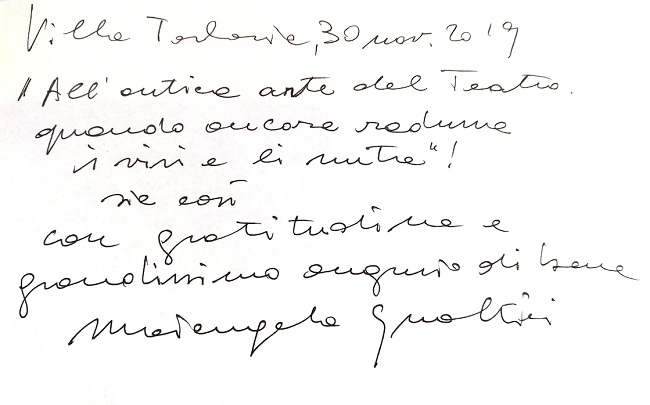 Villa Torlonia, 30 nov. 2019
"All'antica arte del Teatro.
quando ancora raduna
i vivi e li nutre"!
sia così
con gratitudine e
grandissimo augurio di bene
Mariangela Gualtieri